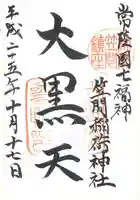 常陸國七福神
笠間稲荷神社
大黒天
平成二十五年十月十七日